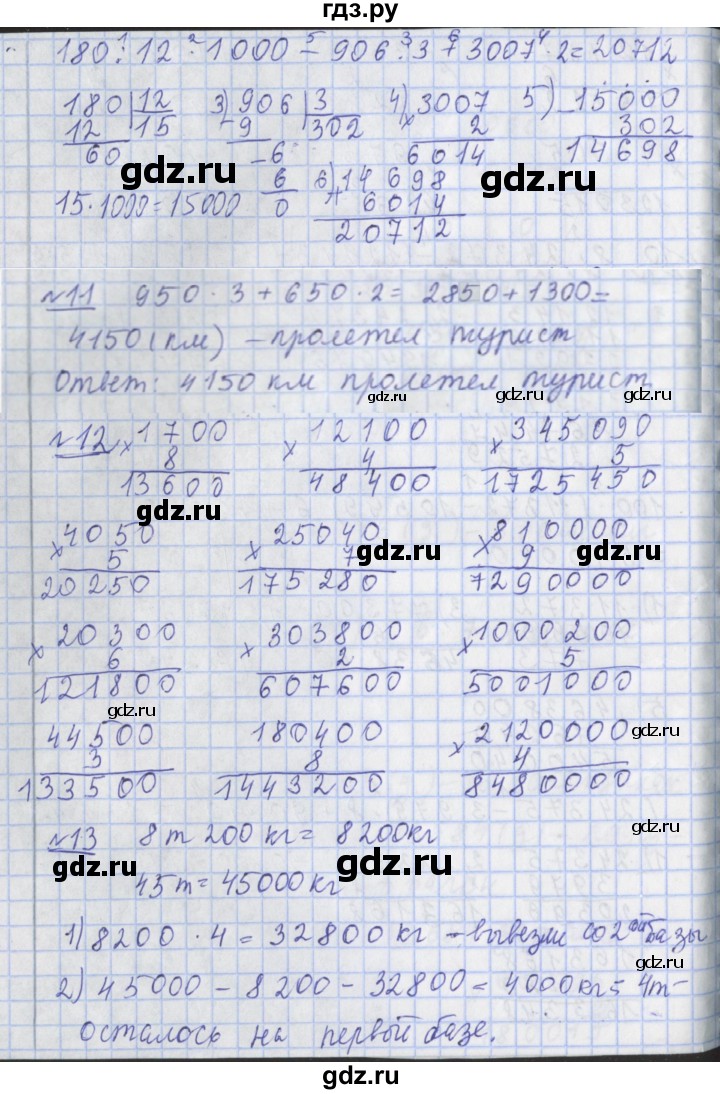 гдз.ру
180 : 12 · 1000 - 906 : 3 + 3007 · 2 = 20712
180 12 3) 906 3 4) 3007 5) 15000
12 15 - 9 302 × 2 302
60 - 6 6014 14698
gdz.ru gdz.ru gdz.ru
15 · 1000 = 15000 6 6) 14698
0 + 6014
20712
№11 950 · 3 + 650 · 2 = 2850 + 1300 =
4150 (км) - пролетел турист
Ответ: 4150 км пролетел турист
gdz.ru gdz.ru
№12 × 1700 × 12100 × 345090
8 4 5
13600 48400 1725450
gdz.ru
× 4050 × 25040 × 810000
5 7 9
20250 175280 7290000
gdz.ru gdz.ru gdz.ru
× 20300 × 303800 × 1000200
6 2 5
121800 607600 5001000
gdz.ru
44500 180400 × 2120000
gdz.ru
3 8 4
133500 1443200 8480000
№13 8 т 200 кг = 8200 кг
gdz.ru
gdz.ru gdz.ru
45 т = 45000 кг
1) 8200 · 4 = 32800 кг - вывезли со 2ой базы
gdz.ru
2) 45000 - 8200 - 32800 = 4000 кг = 4 т -
осталось на первой базе.
gdz.ru